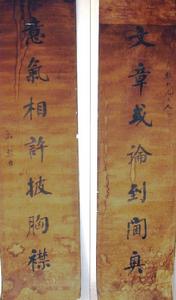 文章或論到閫奧
意氣相許披胸襟